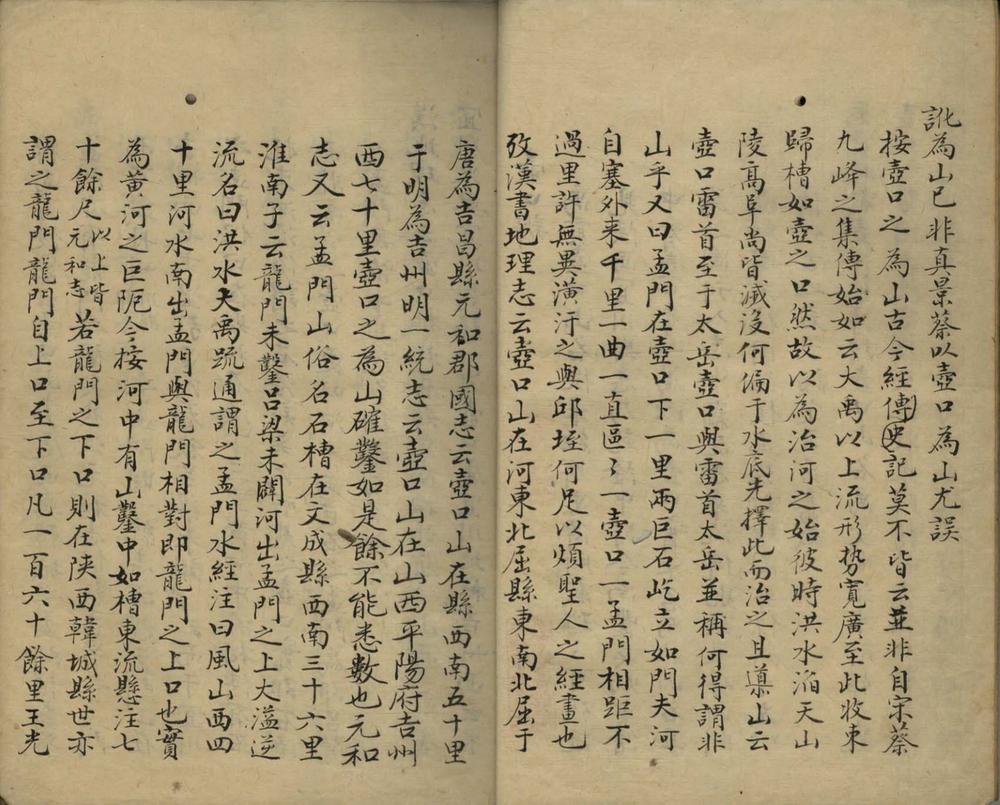 訛為山已非真景蔡以壺口為山尤誤
按壺口之為山古今經傳史記莫不皆云並非自宋蔡
九峰之集傳始如云大禹以上流形势寬廣至此收束
歸槽如壺之口然故以為治河之始彼時洪水滔天山
陵高阜尚皆滅没何偏于水底先擇此而治之且導山云
壺口雷首至于太岳壺口與雷首太岳並稱何得謂非
山乎又曰孟門在壺口下一里兩巨石屹立如門夫河
自塞外来千里一曲一直區〻一壺口一孟門相距不
過里許無異潢汙之與邱垤何足以煩聖人之經畫也
攷漢書地理志云壺口山在河東北屈縣東南北屈于
唐為吉昌縣元和郡國志云壺口山在縣西南五十里
于明為吉州明一統志云壺口山在山西平陽府吉州
西七十里壺口之為山確鑿如是餘不能悉數也元和
志又云孟門山俗名石槽在文成縣西南三十六里
淮南子云龍門未鑿吕梁未闢河出孟門之上大溢逆
流名曰洪水大禹疏通謂之孟門水經注曰風山西四
十里河水南出孟門與龍門相對即龍門之上口也實
為黃河之巨阨今按河中有山鑿中如槽東流懸注七
十餘尺以上皆元和志若龍門之下口則在陝西韓城縣世亦
謂之龍門龍門自上口至下口凡一百六十餘里王光